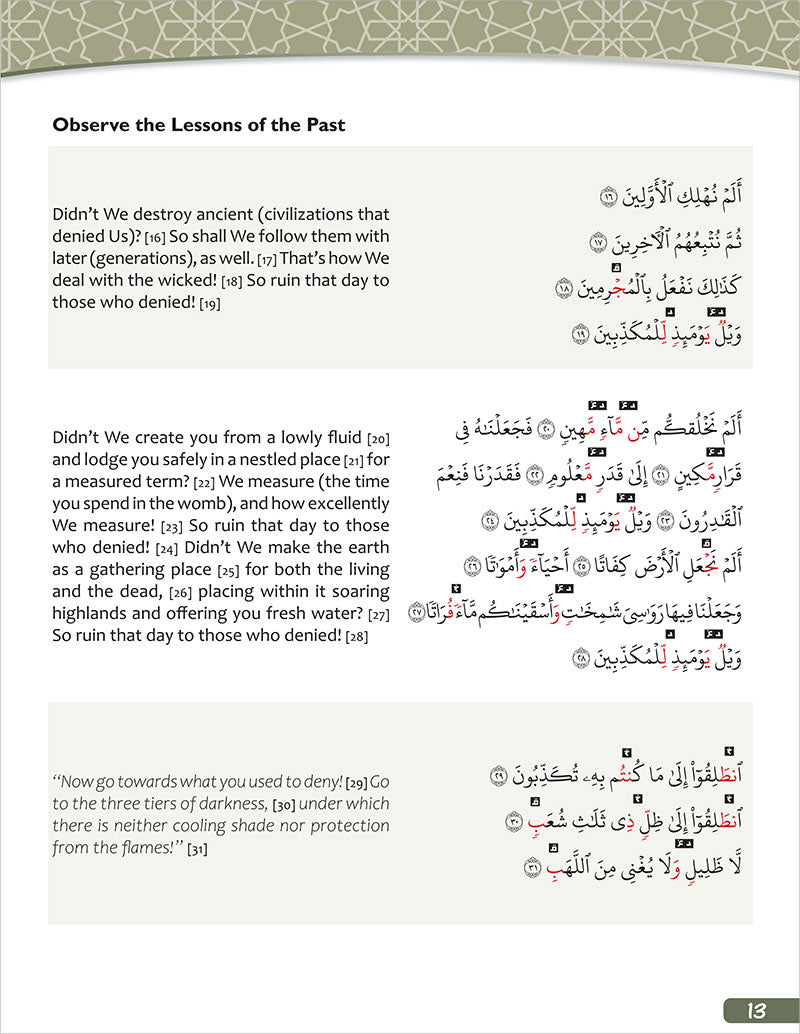 Observe the Lessons of the Past
Didn't We destroy ancient (civilizations that
denied Us)? [16] So shall We follow them with
later (generations), as well. [17] That's how We
deal with the wicked! [18] So ruin that day to
those who denied! [19]
أَلَمْ نُهْلِكِ ٱلْأَوَّلِينَ ١٦
ثُمَّ نُتْبِعُهُمُ ٱلْأَخِرِينَ ١٧
كَذَٰلِكَ نَفْعَلُ بِٱلْمُجْرِمِينَ ١٨
وَيْلٌ يَوْمَئِذٍ لِّلْمُكَذِّبِينَ ١٩
Didn't We create you from a lowly fluid [20]
and lodge you safely in a nestled place [21] for
a measured term? [22] We measure (the time
you spend in the womb), and how excellently
We measure! [23] So ruin that day to those
who denied! [24] Didn't We make the earth
as a gathering place [25] for both the living
and the dead, [26] placing within it soaring
highlands and offering you fresh water? [27]
So ruin that day to those who denied! [28]
أَلَمْ نَخْلُقكُّم مِّن مَّآءٍ مَّهِينٍ ٢٠ فَجَعَلْنَٰهُ فِى
قَرَارٍ مَّكِينٍ ٢١ إِلَىٰ قَدَرٍ مَّعْلُومٍ ٢٢ فَقَدَرْنَا فَنِعْمَ
ٱلْقَٰدِرُونَ ٢٣ وَيْلٌ يَوْمَئِذٍ لِّلْمُكَذِّبِينَ ٢٤
أَلَمْ نَجْعَلِ ٱلْأَرْضَ كِفَاتًا ٢٥ أَحْيَآءً وَأَمْوَٰتًا ٢٦
وَجَعَلْنَا فِيهَا رَوَٰسِىَ شَٰمِخَٰتٍ وَأَسْقَيْنَٰكُم مَّآءً فُرَاتًا ٢٧
وَيْلٌ يَوْمَئِذٍ لِّلْمُكَذِّبِينَ ٢٨
"Now go towards what you used to deny! [29] Go
to the three tiers of darkness, [30] under which
there is neither cooling shade nor protection
from the flames!" [31]
ٱنطَلِقُوٓا۟ إِلَىٰ مَا كُنتُم بِهِۦ تُكَذِّبُونَ ٢٩
ٱنطَلِقُوٓا۟ إِلَىٰ ظِلٍّ ذِى ثَلَٰثِ شُعَبٍ ٣٠
لَّا ظَلِيلٍ وَلَا يُغْنِى مِنَ ٱللَّهَبِ ٣١
13